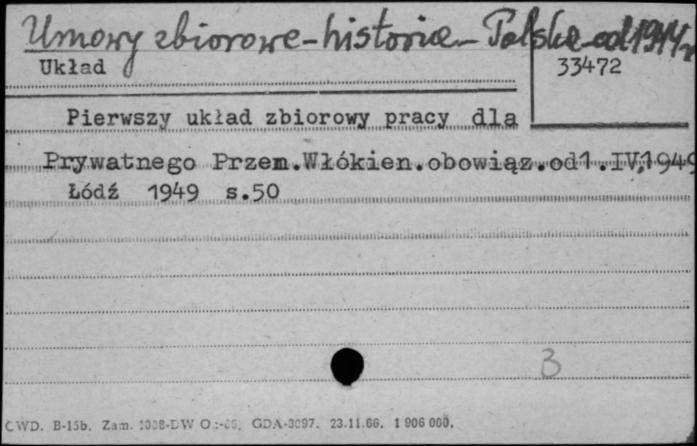 Umowy zbiorowe - historia - Polska od 1944 r
Układ
33472
Pierwszy układ zbiorowy pracy dla
Prywatnego Przem.Włókien.obowiąz.od1.IV,1949
Łódź 1949 s.50
3
CWD. B-15b. Zam. GDA-3097. 23.11.66. 1 906 000.